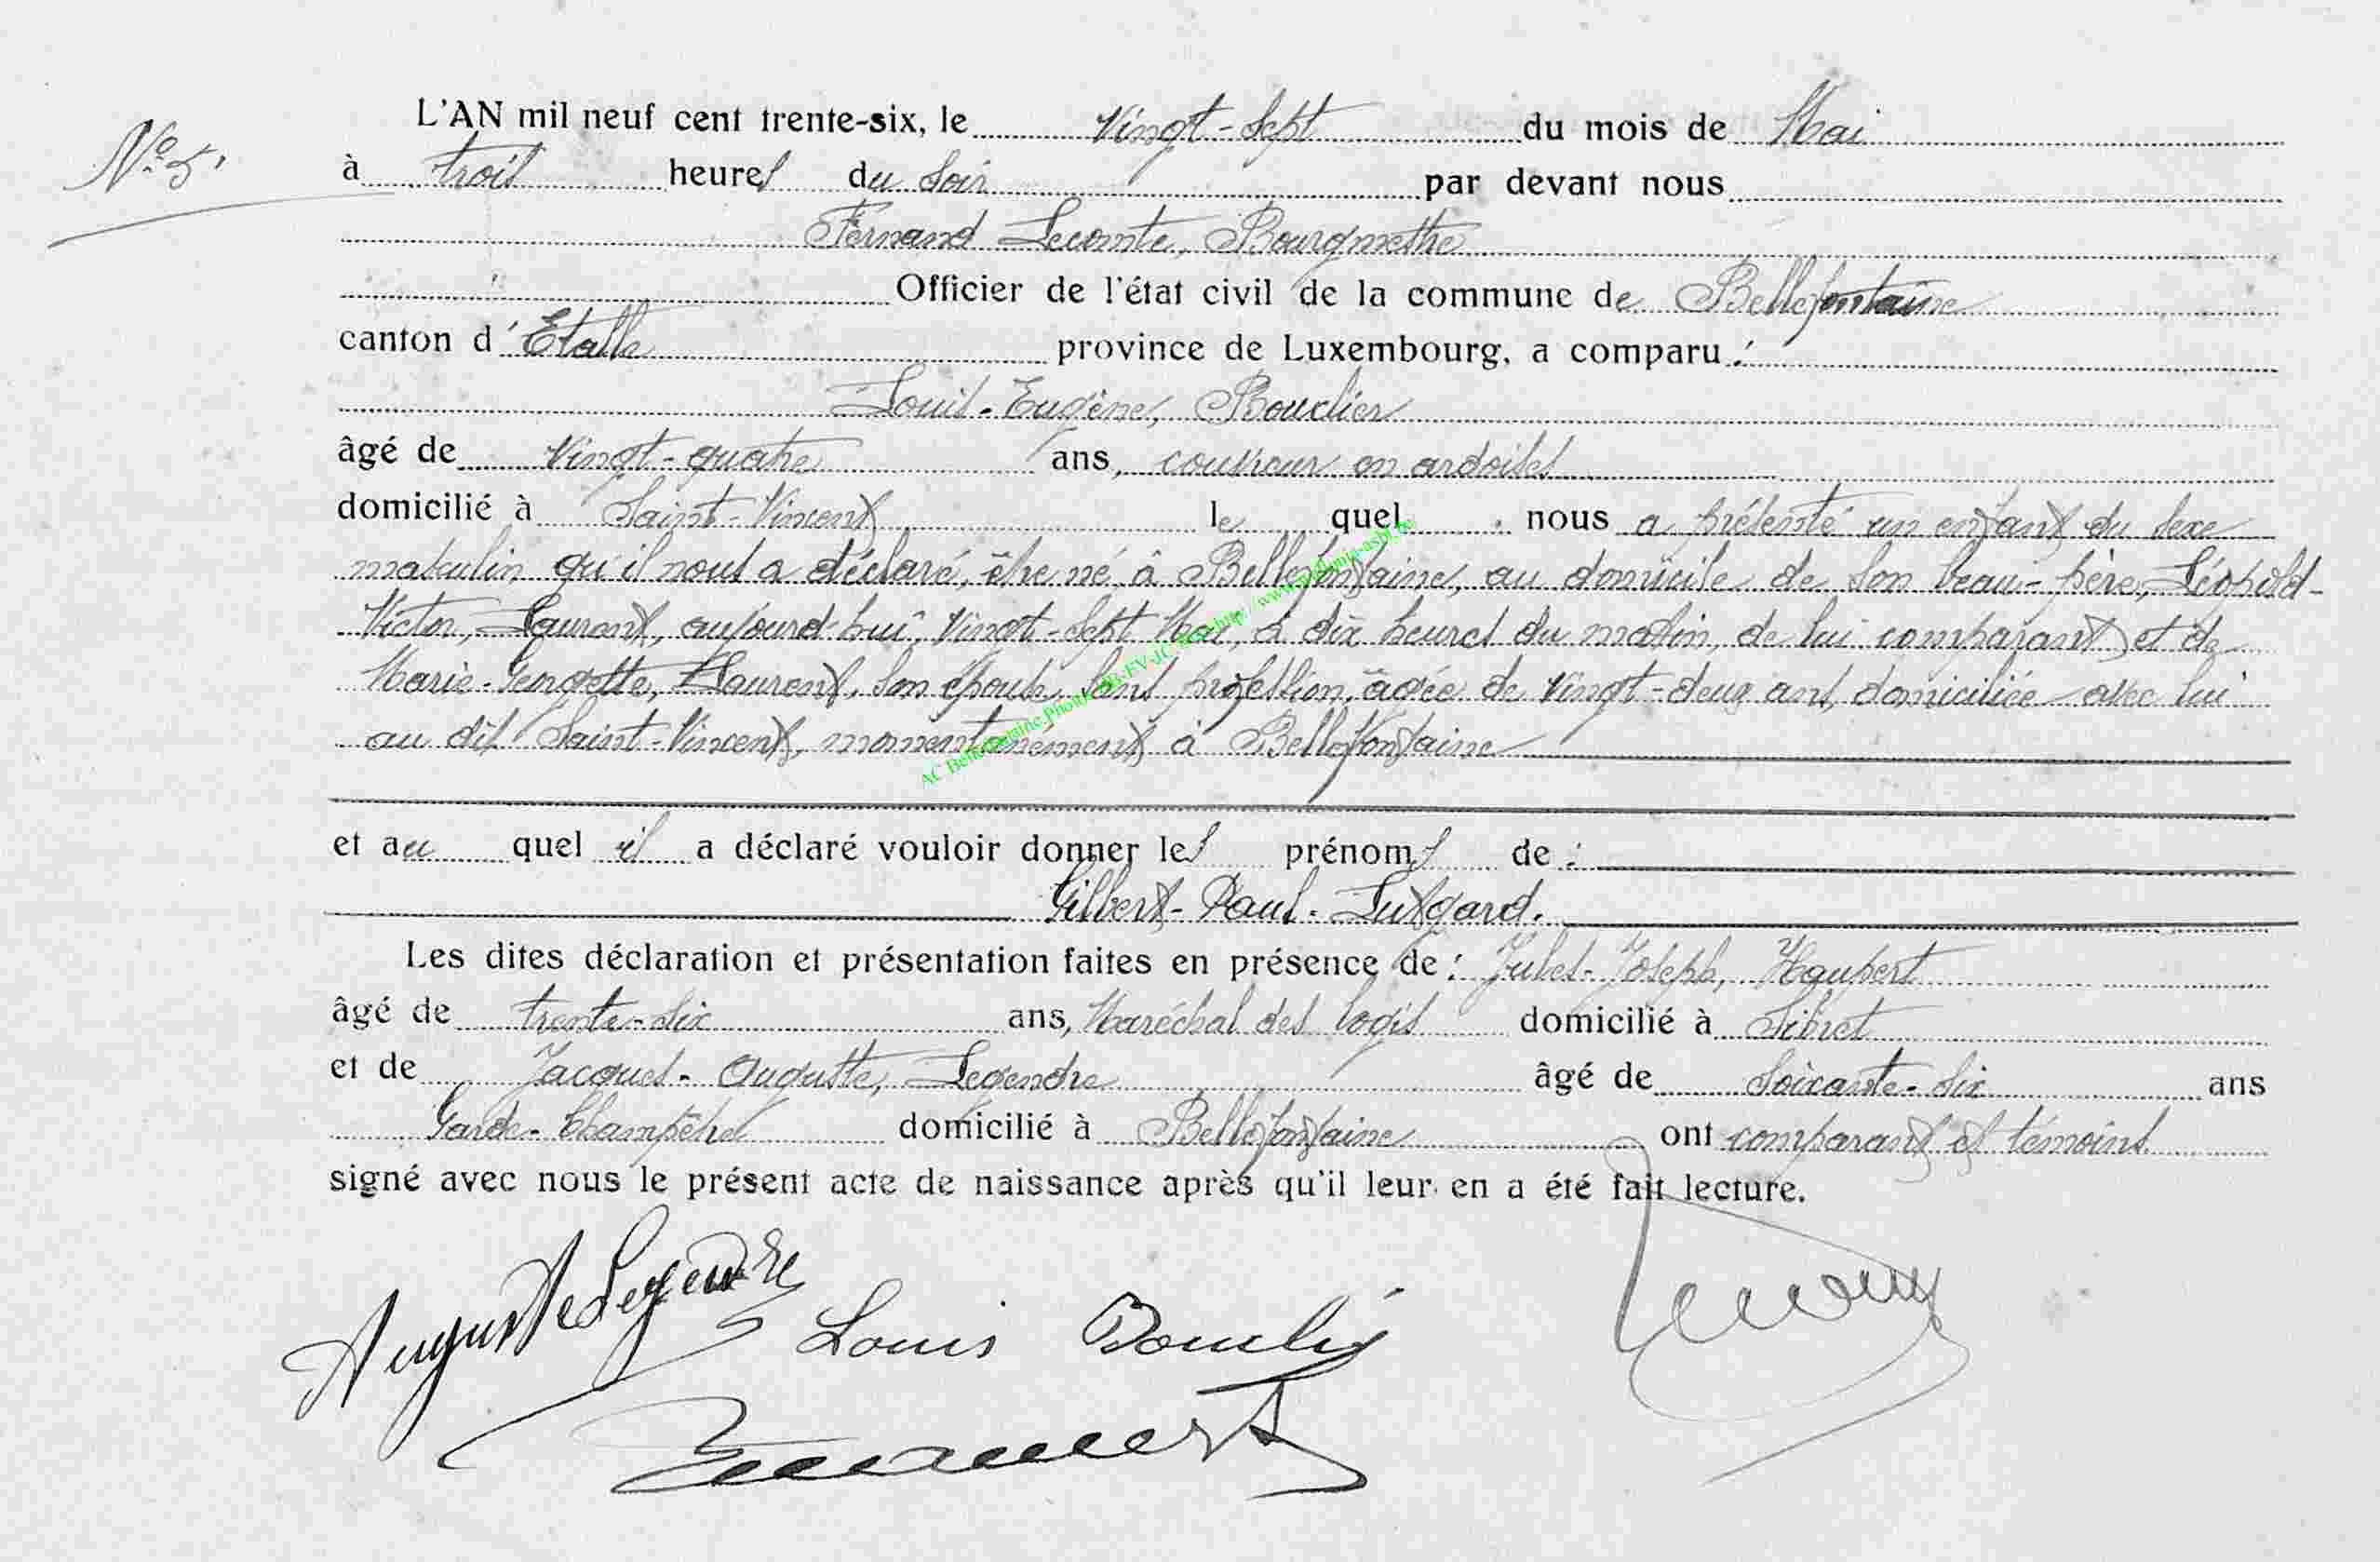 L'AN mil neuf cent trente-six, le Vingt-Sept du mois de Mai
N° 5.
à trois heures du Soir par devant nous
Fernand Lecomte, Bourgmestre
Officier de l'état civil de la commune de Bellefontaine
canton d'Etalle province de Luxembourg, a comparu :
Louis-Eugène, Bouclier
âgé de Vingt-quatre ans, couvreur en ardoises
domicilié à Saint-Vincent le quel nous a présenté un enfant du sexe
masculin qu'il nous a déclaré, être né à Bellefontaine, au domicile de son beau-père, Léopold-
Victor, Laurent, aujourd'hui, Vingt-Sept Mai, à dix heures du matin, de lui comparant et de
Marie-Gengotte, Laurent, son épouse, sans profession, âgée de Vingt-deux ans, domiciliée avec lui
au dit Saint-Vincent, momentanément à Bellefontaine
et au quel il a déclaré vouloir donner les prénoms de :
Gilbert-Paul-Lutgard.
Les dites déclaration et présentation faites en présence de : Jules-Joseph, Haupert
âgé de trente-six ans, Maréchal des logis domicilié à Sibret
et de Jacques-Auguste, Legendre âgé de Soixante-six ans
Garde-Champêtre domicilié à Bellefontaine ont comparant et témoins
signé avec nous le présent acte de naissance après qu'il leur en a été fait lecture.
Auguste Legendre
Louis Bouclier